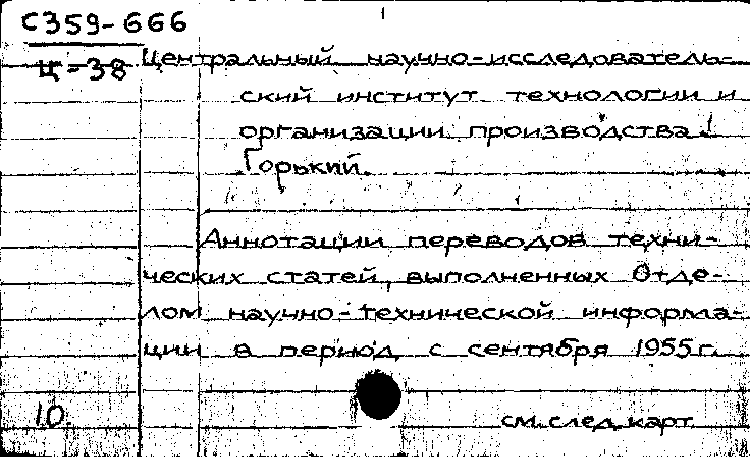 С359-666
Ц-38
Центральный научно-исследователь-
ский институт технологии и
организации производства.
Горький.
Аннотации переводов техни-
ческих статей, выполненных Отде-
лом научно-технической информа-
ции в период с сентября 1955 г.
10.
см. след. карт.